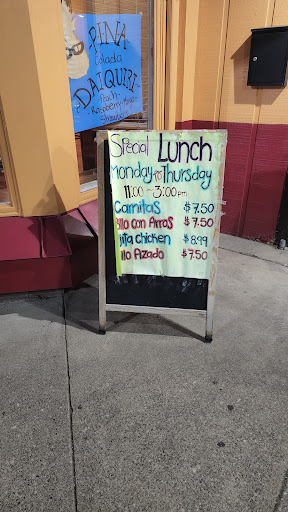 PINA
Colada
DAIQUIRI
Peach
Raspberry
Special Lunch
Monday to Thursday
11:00 - 3:00 pm
Carnitas $7.50
llo Con Arros $7.50
ita Chicken $8.99
llo Azado $7.50